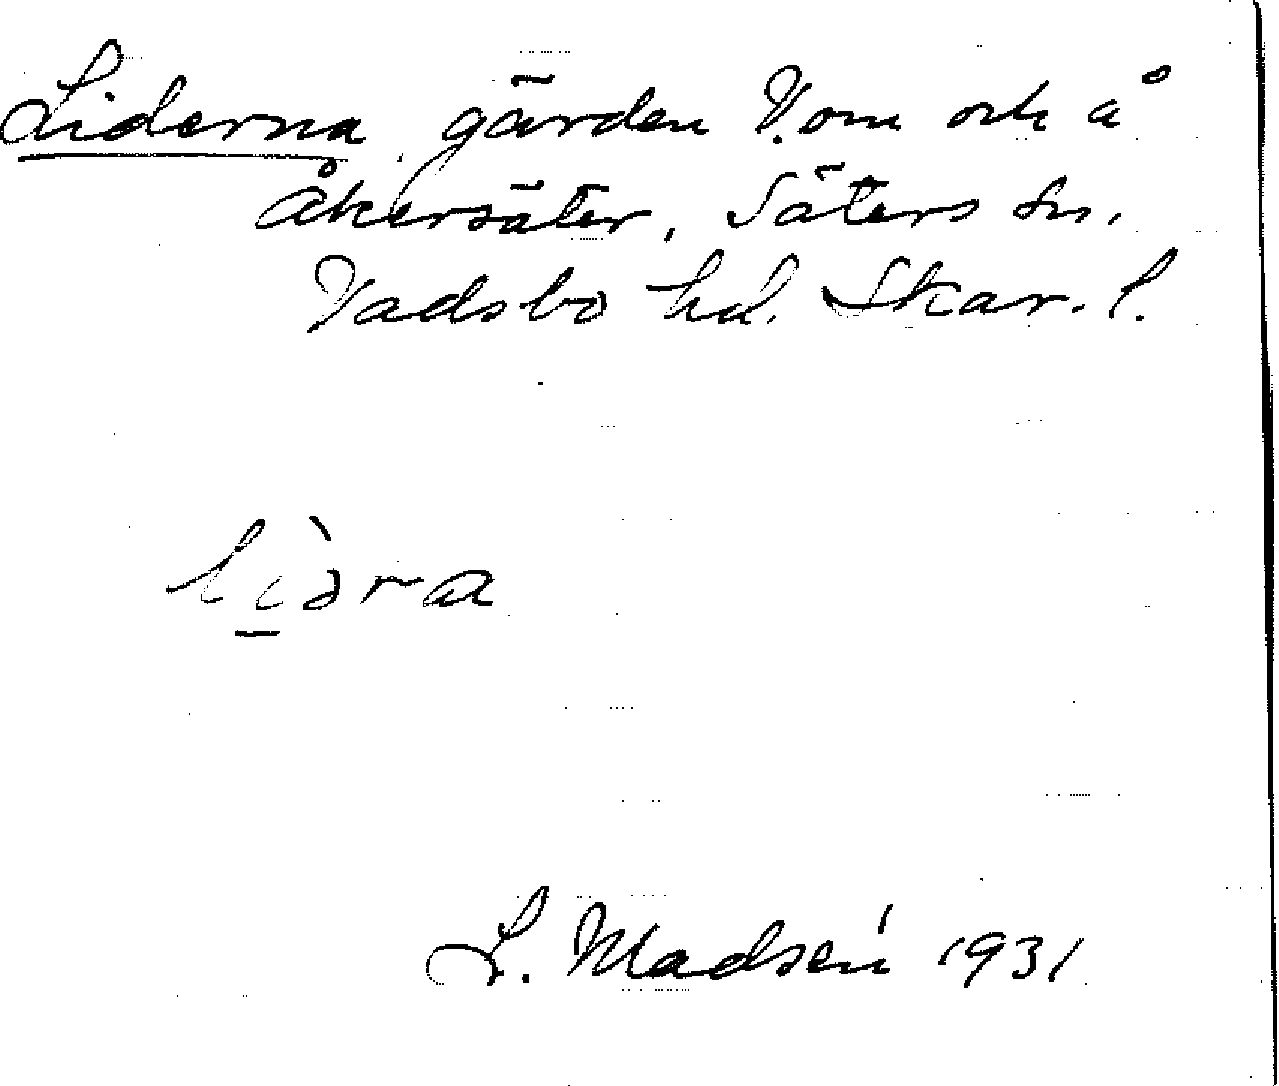 Liderna, gärden V. om och å
Åkersäter, Säters sn,
Vadsbo hd. Skar. l.
lìdra
L. Madsén 1931